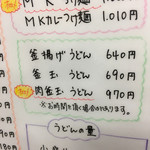 MKつけ麺
MKカレーつけ麺 1.010円
釜揚げうどん 640円
釜玉うどん 690円
肉釜玉うどん 970円
※お時間を頂く場合があります。
うどんの量